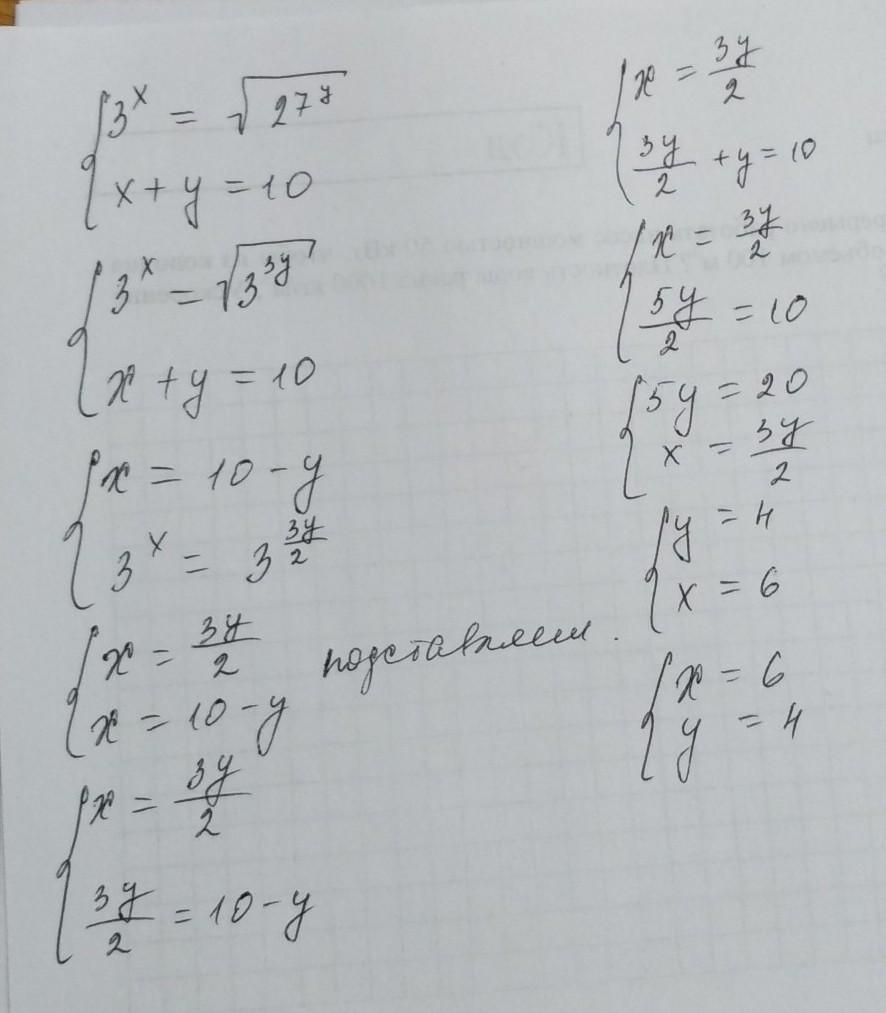 3^x = √27^y
x + y = 10
3^x = √3^{3y}
x + y = 10
x = 10 - y
3^x = 3^{3y/2}
x = 3y/2
x = 10 - y
подставляем.
x = 3y/2
3y/2 = 10 - y
x = 3y/2
3y/2 + y = 10
x = 3y/2
5y/2 = 10
5y = 20
x = 3y/2
y = 4
x = 6
x = 6
y = 4